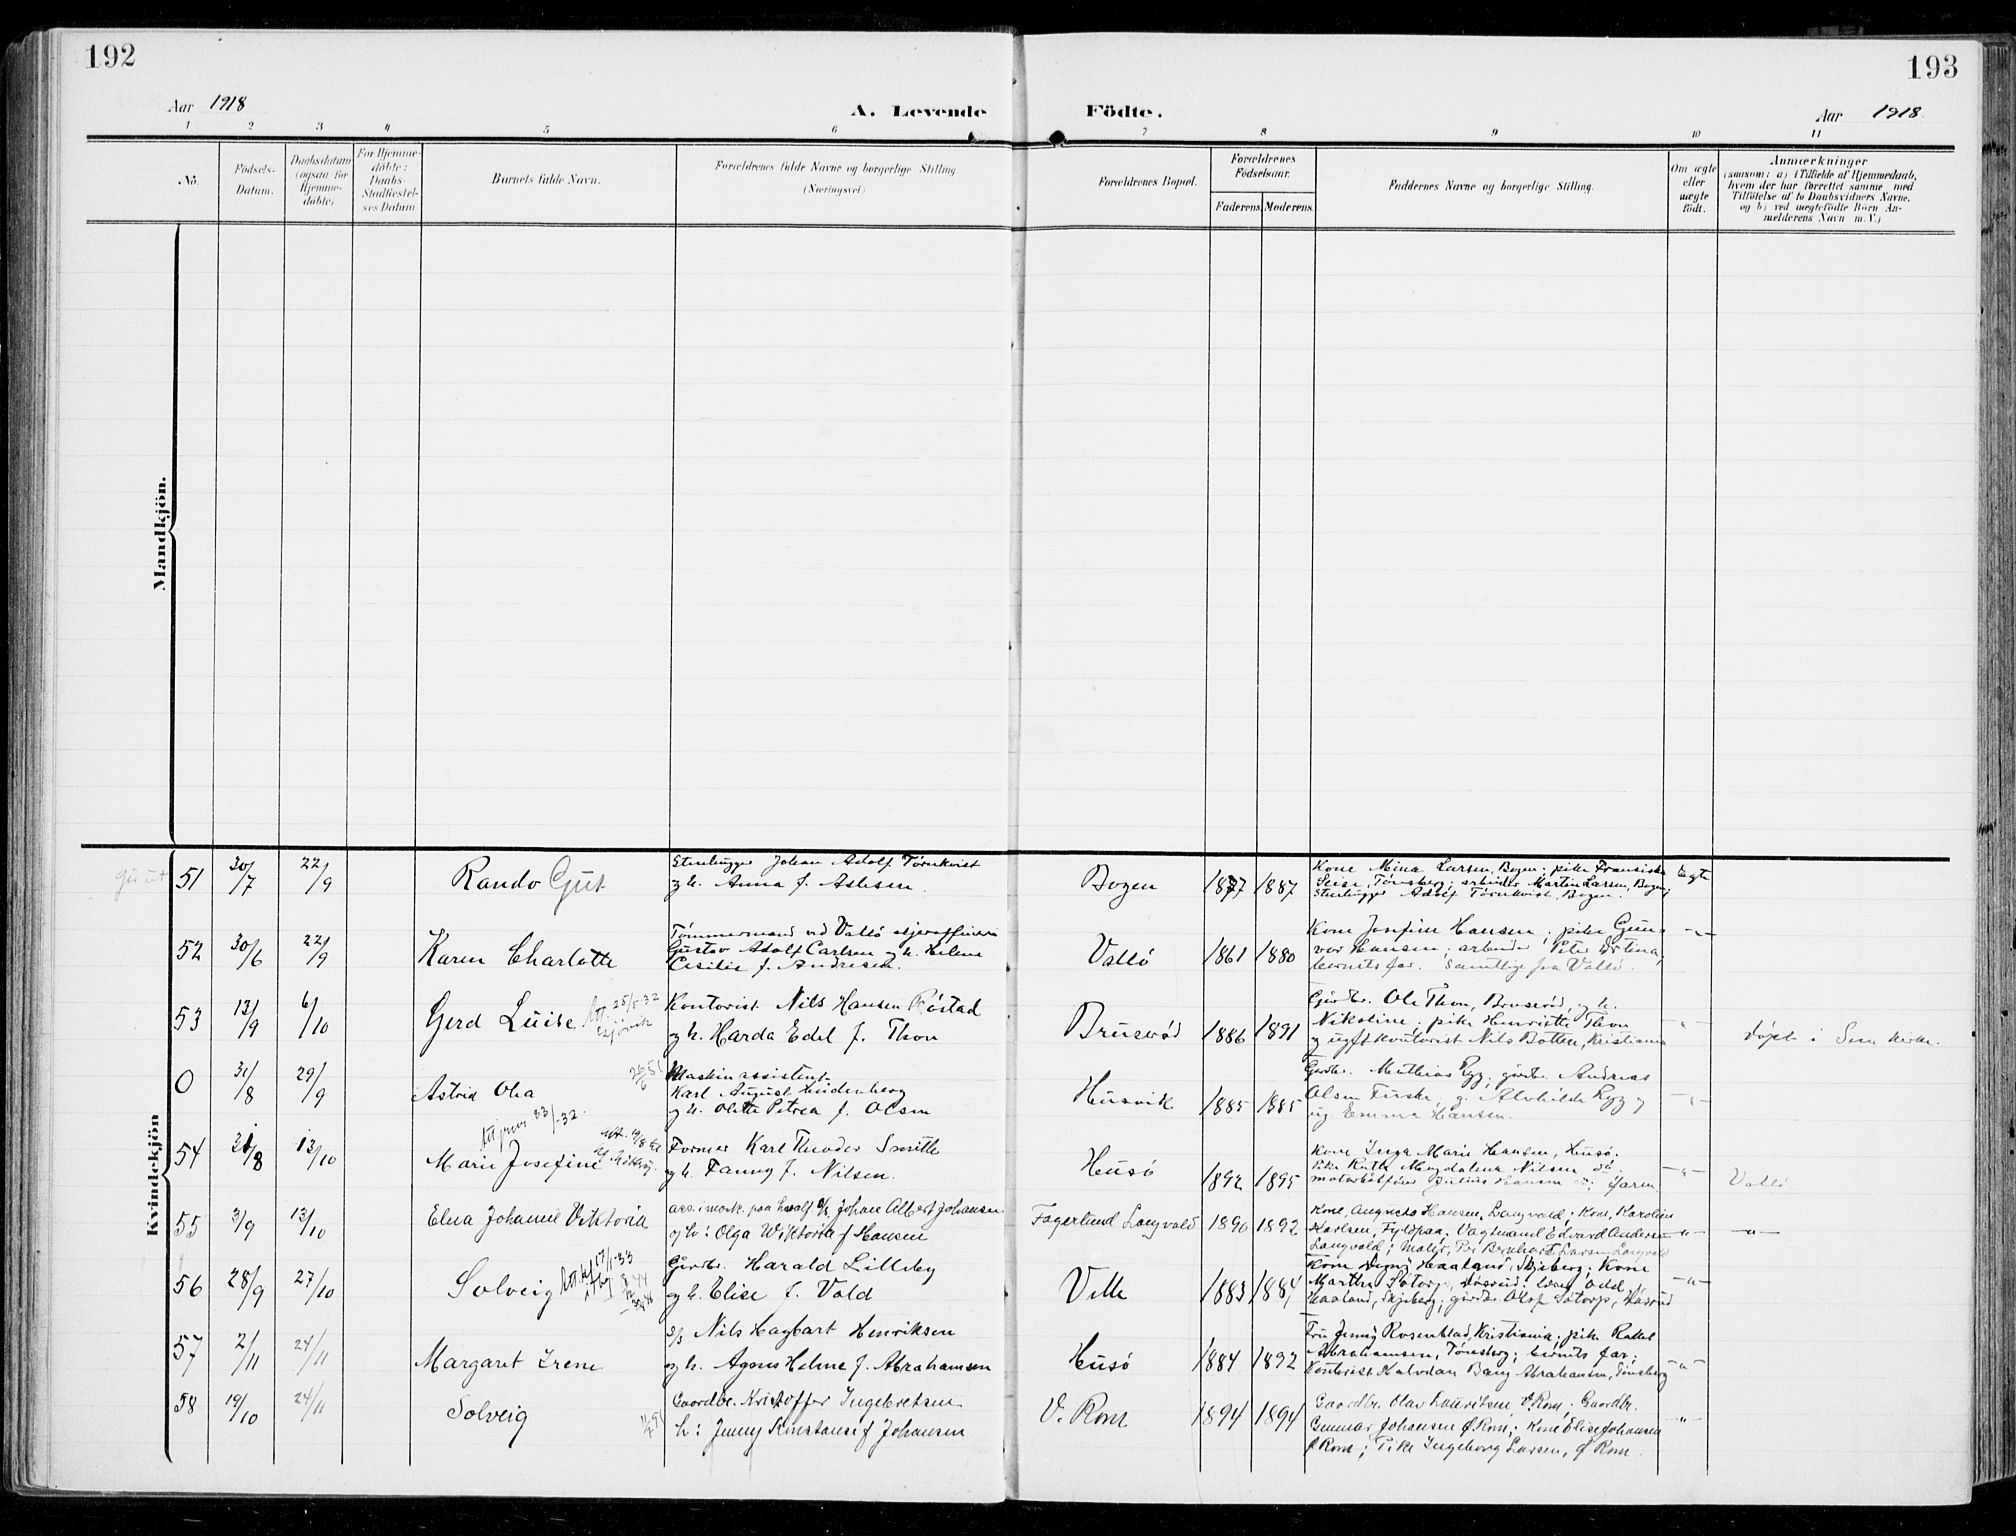 192
193
Aar 1918
A. Levende
Födte.
Aar 1918
1 2 3 4 5 6 7 8 9 10 11
No.
Födsels-
Datum.
Daabsdatum
(ogsaa for
Hjemme-
döbte)
For Hjemme-
döbte:
Daabs-
Stadfæstel-
ses Datum
Barnets fulde Navn.
Forældrenes fulde Navne og borgerlige Stilling
(Næringsvei)
Forældrenes Bopæl.
Forældrenes
Födselsaar.
Faderens. Moderens.
Faddernes Navne og borgerlige Stilling.
Om ægte
eller
uægte
födt.
Anmærkninger
(saasom: a) i Tilfælde af Hjemmedaab,
hvem der har forrettet samme, med
Tilföielse af to Daabsvidners Navne.
og b) ved uægtefödte Börn An-
melderens Navn m. V.)
Mandkjön.
Kvindekjön
51 30/7 22/9
Rando Gut
Stenhugger Johan Adolf Törnkvist
og h. Anna f. Aslesen.
Bogen 1877 1887
Kone Mina Larsen, Bogen; pike Fransiska
Tønsberg; arbeider Martin Larsen, Bogen;
Stenhugger Adolf Törnkvist, Bogen.
ægte
52 30/6 22/9
Karen Charlotte
Tømmermand ved Vallö
Gustav Adolf Carlsen og h. Helene
Cesilie f. Andresen.
Vallö 1861 1880
Kone Josefine Hansen; pike Gun-
vor Hansen; arbeider Peter
barnets far. Samtlige fra Vallö.
-"-
53 13/9 6/10
Gerd Luise
Att. 25/5-32
Kontorist Nils Hansen Röstad
og h. Harda Edel f. Thon
Bruseröd 1886 1891
Gårdbr. Ole Thon, Bruseröd, og h.
Nikoline; pike Henriette Thon
og ugift kontorist Nils Botten, Kristiania
-"-
döpt i Sem kirke.
0 31/8 29/9
Astrid Olea
Maskinassistent
Karl August Lindenberg
og h. Olette Petrea f. Olsen
Husvik 1885 1885
Gårdbr. Mathias Ryg; gårdbr. Andreas
Olsen g. Alvhilde Ryg og
ug. Emma Hansen.
-"-
54 21/8 13/10
Marie Josefine
Former Karl Theodor Smith
og h. Fanny f. Nilsen.
Husö 1892 1895
Kone Inga Marie Hansen, Husö.
Pike Ruth Magdalena Nilsen do.
Julius Hansen do; faren.
-"-
Vallö
55 3/9 13/10
Elna Johanne Viktoria
Johan Albert Johansen
og h: Olga Wiktoria f Hansen
Fagerlund Langvald 1890 1892
Kone, Augusta Hansen, Langvald; Kone, Karoline
Karlsen, Fyldpaa; Vagtmand Edvard Andersen
Langvald; Maler, Per Bernhard Larsen Langvald
-"-
-"-
56 28/9 27/10
Solveig
Gårdbr. Harald Lilleby
og h. Elise f. Vold
Velle 1883 1884
Kone Dagny Haaland, Skjeberg; Kone
Martha Sotorp,
Haaland, Skjeberg; gårdbr. Olaf Sotorp,
-"-
57 2/11 24/11
Margaret Irene
s/s Nils Hagbart Henriksen
og h. Agnes Helene f. Abrahamsen
Husö 1884 1892
Fru Jenny Rosenblad, Kristiania; pike Rakel
Abrahamsen, Tønsberg; barnets far;
Kontorist Halvdan Bang Abrahamsen, Tønsberg
-"-
58 19/10 24/11
Solveig
Gaardbr. Kristoffer Ingebretsen
h: Jenny Konstanse f Johansen
V. Rom 1894 1894
Gaardbr. Olav Lauritsen, V. Rom; Gaardbr.
Gunnar Johansen Ø Rom; Kone Elise Johansen
Ø Rom; Pike Ingeborg Larsen, Ø Rom.
-"-